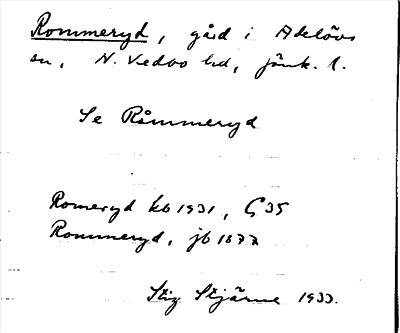 Rommeryd, gård i Adelövs
sn, N. Vedbo hd, Jönk. l.
Se Råmmeryd
Romeryd kb 1931, G35
Rommeryd, jb 1877
Stig Stjärne 1933.